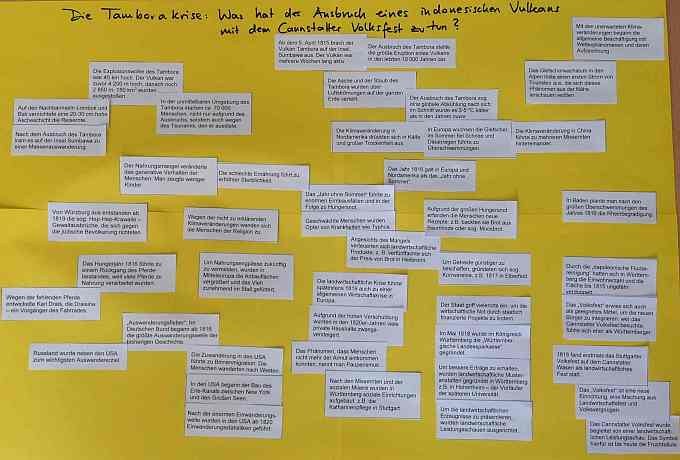 Die Tamborakrise: Was hat der Ausbruch eines indonesischen Vulkans
mit dem Cannstatter Volksfest zu tun?
Am 5. April 1815 brach der
Vulkan Tambora auf der Insel
Sumbawa aus. Der Vulkan war
mehrere Wochen lang aktiv.
Der Ausbruch des Tambora stellte
die größte Eruption eines Vulkans
in den letzten 10 000 Jahren dar.
Mit der unerwarteten Klima-
veränderungen begann die
allgemeine Beschäftigung mit
Wetterphänomenen und deren
Aufzeichnung.
Die Explosionswolke des Tambora
war 45 km hoch. Der Vulkan war
zuvor 4 200 m hoch, danach noch
2 850 m. 150 km³ wurden
ausgestoßen.
Die Asche und der Staub des
Tambora wurden über
Luftströmungen auf der ganzen
Erde verteilt.
Das Gletscherwachstum in den
Alpen löste einen ersten Strom von
Touristen aus, die sich dieses
Phänomen aus der Nähe
anschauen wollten.
Auf den Nachbarinseln Lombok und
Bali vernichtete eine 20-30 cm hohe
Ascheschicht die Reisernte.
In der unmittelbaren Umgebung des
Tambora starben ca. 70 000
Menschen, nicht nur aufgrund des
Ausbruchs, sondern auch wegen
des Tsunamis, den er auslöste.
Der Ausbruch des Tambora zog
eine globale Abkühlung nach sich.
Im Schnitt wurde es 3-5°C kälter
als in den Jahren zuvor.
Nach dem Ausbruch des Tambora
kam es auf der Insel Sumbawa zu
einer Massenauswanderung.
Die Klimaveränderung in
Nordamerika drückten sich in Kälte
und großer Trockenheit aus.
In Europa wuchsen die Gletscher,
im Sommer fiel Schnee und
Dauerregen führte zu
Überschwemmungen.
Die Klimaveränderung in China
führte zu mehreren Missernten
hintereinander.
Der Nahrungsmangel veränderte
das generative Verhalten der
Menschen: Man zeugte weniger
Kinder.
Die schlechte Ernährung führt zu
erhöhter Sterblichkeit.
Das Jahr 1816 galt in Europa und
Nordamerika als das „Jahr ohne
Sommer“.
Das „Jahr ohne Sommer“ führte zu
enormen Ernteausfällen und in der
Folge zu Hungersnot.
In Baden plante man nach den
großen Überschwemmungen des
Jahres 1816 die Rheinbegradigung.
Von Würzburg aus entstanden ab
1819 die sog. Hep-Hep-Krawalle –
Gewaltausbrüche, die sich gegen
die jüdische Bevölkerung richteten.
Wegen der nicht zu erklärenden
Klimaveränderungen wandten sich
die Menschen der Religion zu.
Geschwächte Menschen wurden
Opfer von Krankheiten wie Typhus.
Aufgrund der großen Hungersnot
erfanden die Menschen neue
Rezepte: z.B. backten sie Brot aus
Baumrinde oder sog. Moosbrot.
Angesichts des Mangels
verteuerten sich landwirtschaftliche
Produkte, z. B. verfünffachte sich
der Preis von Brot in Heilbronn.
Das Hungerjahr 1816 führte zu
einem Rückgang des Pferde-
bestandes, weil viele Pferde zu
Nahrung verarbeitet wurden.
Um Nahrungsengpässe zukünftig
zu vermeiden, wurden in
Mitteleuropa die Anbauflächen
vergrößert und das Vieh
zunehmend im Stall gefüttert.
Um Getreide günstiger zu
beschaffen, gründeten sich sog.
Kornvereine, z.B. 1817 in Elberfeld.
Durch die „napoleonische Flurbe-
reinigung“ hatten sich in Württem-
berg die Einwohnerzahl und die
Fläche bis 1815 ungefähr
verdoppelt.
Die landwirtschaftliche Krise führte
spätestens 1819 auch zu einer
allgemeinen Wirtschaftskrise in
Europa.
Wegen der fehlenden Pferde
entwickelte Karl Drais, die Draisine
– ein Vorgänger des Fahrrades.
Der Staat griff vielerorts ein, um die
wirtschaftliche Not durch staatlich
finanzierte Projekte zu lindern.
Das „Volksfest“ erwies sich auch
als geeignetes Mittel, um die neuen
Bürger zu integrieren: wer das
Cannstatter Volksfest besuchte,
fühlte sich eher als Württemberger.
„Auswanderungsfieber“: Im
Deutschen Bund begann ab 1816
die größte Auswanderungswelle der
bisherigen Geschichte.
Aufgrund der hohen Verschuldung
wurden in den 1820er-Jahren viele
private Haushalte zwangs-
versteigert.
Im Mai 1818 wurde im Königreich
Württemberg die „Württember-
gische Landessparkasse“
gegründet.
Russland wurde neben den USA
zum wichtigsten Auswandererziel.
Die Zuwanderung in den USA
führte zu Binnenmigration: Die
Menschen wanderten nach Westen.
Das Phänomen, dass Menschen
nicht mehr der Armut entkommen
konnten, nennt man Pauperismus.
1818 fand erstmals das Stuttgarter
Volksfest auf dem Cannstatter
Wasen als landwirtschaftliches
Fest statt.
Um bessere Erträge zu schaffen,
wurden landwirtschaftliche Muster-
anstalten gegründet in Württemberg
z.B. in Hohenheim – der Vorläufer
der späteren Universität.
In den USA begann der Bau des
Erie-Kanals zwischen New York
und den Großen Seen.
Nach den Missernten und der
sozialen Misere wurden in
Württemberg soziale Einrichtungen
aufgebaut, z.B. die
Katharinenpflege in Stuttgart.
Das „Volksfest“ ist eine neue
Einrichtung, eine Mischung aus
Landwirtschaftsfesten und
Volksvergnügen.
Nach der enormen Einwanderungs-
welle wurden in den USA ab 1820
Einwanderungsstatistiken geführt.
Um die landwirtschaftlichen
Erzeugnisse zu präsentieren,
wurden landwirtschaftliche
Leistungsschauen ausgerichtet.
Das Cannstatter Volksfest wurde
begleitet von einer landwirtschaft-
lichen Leistungsschau. Das Symbol
hierfür ist bis heute die Fruchtsäule.